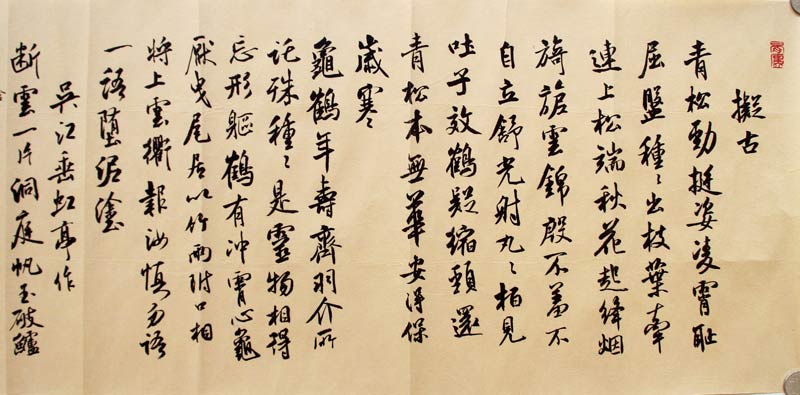 擬古
青松勁挺姿凌霄恥
屈盤種〻出枝葉牽
連上松端秋花起絳烟
旖旎雲錦殷不羞不
自立舒光射丸〻柏見
吐子效鶴疑縮頸還
青松本無華安得保
歲寒
龜鶴年壽齊羽介所
託殊種〻是靈物相得
忘形軀鶴有冲霄心龜
厭曳尾居以竹兩附口相
將上雲衢報汝慎勿語
一語墮泥塗
吳江垂虹亭作
断雲一片洞庭帆玉破鱸